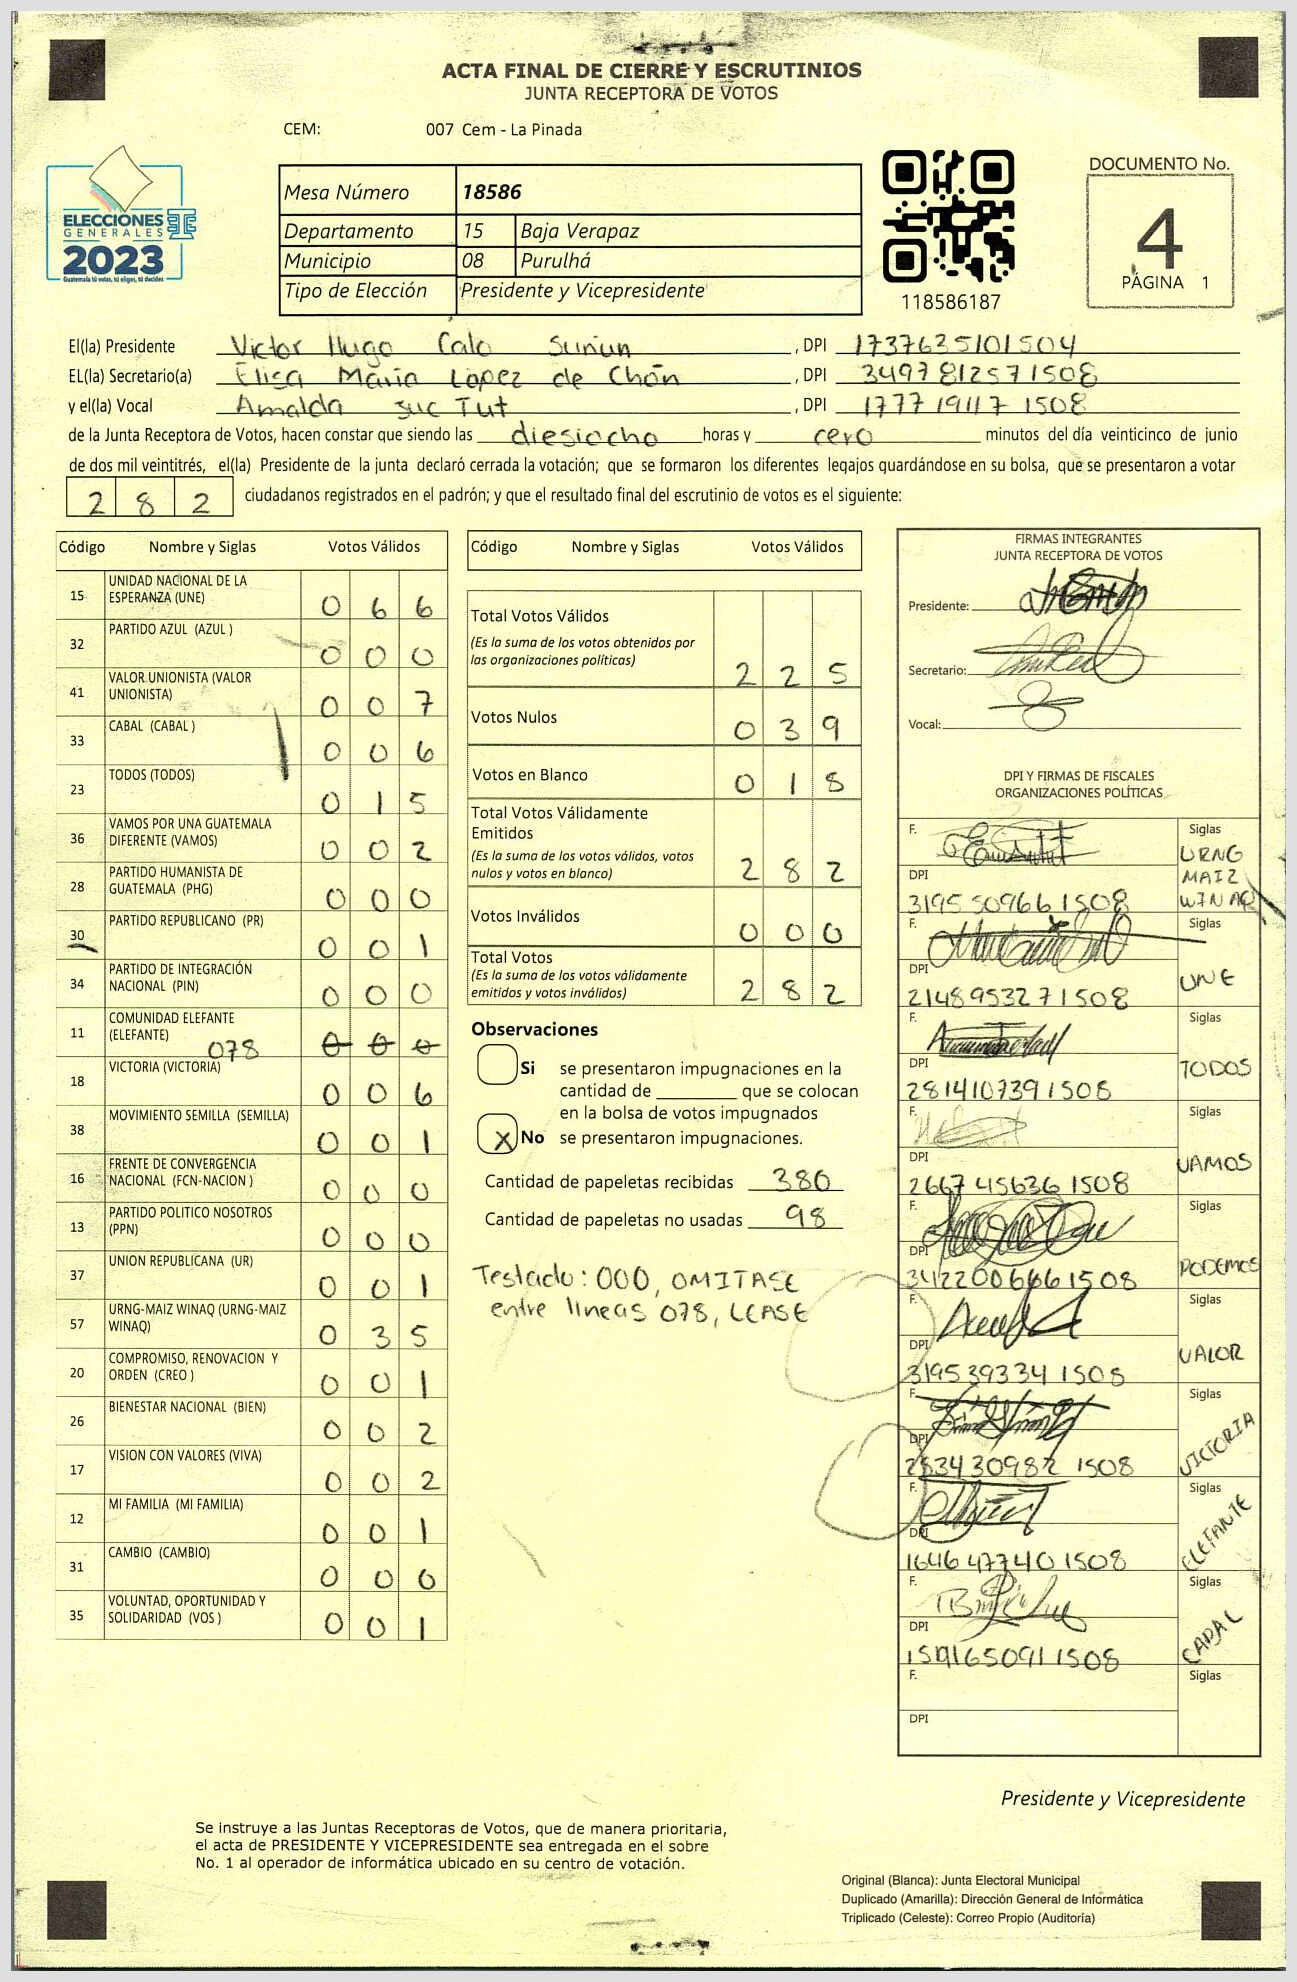 ACTA FINAL DE CIERRE Y ESCRUTINIOS
JUNTA RECEPTORA DE VOTOS
CEM: 007 Cem - La Pinada
ELECCIONES
GENERALES
2023
Guatemala tú votas, tú eliges, tú decides
Mesa Número 18586
Departamento 15 Baja Verapaz
Municipio 08 Purulhá
Tipo de Elección Presidente y Vicepresidente
118586187
DOCUMENTO No.
4
PÁGINA 1
El(la) Presidente Victor Hugo Calo Sunun, DPI 1737635101504
EL(la) Secretario(a) Elisa Maria Lopez de Chón, DPI 3497812571508
y el(la) Vocal Amalda suc Tut, DPI 1777191171508
de la Junta Receptora de Votos, hacen constar que siendo las diesiocho horas y cero minutos del día veinticinco de junio
de dos mil veintitrés, el(la) Presidente de la junta declaró cerrada la votación; que se formaron los diferentes legajos guardándose en su bolsa, que se presentaron a votar
2 8 2 ciudadanos registrados en el padrón; y que el resultado final del escrutinio de votos es el siguiente:
Código Nombre y Siglas Votos Válidos
15 UNIDAD NACIONAL DE LA ESPERANZA (UNE) 0 6 6
32 PARTIDO AZUL (AZUL ) 0 0 0
41 VALOR UNIONISTA (VALOR UNIONISTA) 0 0 7
33 CABAL (CABAL ) 0 0 6
23 TODOS (TODOS) 0 1 5
36 VAMOS POR UNA GUATEMALA DIFERENTE (VAMOS) 0 0 2
28 PARTIDO HUMANISTA DE GUATEMALA (PHG) 0 0 0
30 PARTIDO REPUBLICANO (PR) 0 0 1
34 PARTIDO DE INTEGRACIÓN NACIONAL (PIN) 0 0 0
11 COMUNIDAD ELEFANTE (ELEFANTE) 078 0 0 0
18 VICTORIA (VICTORIA) 0 0 6
38 MOVIMIENTO SEMILLA (SEMILLA) 0 0 1
16 FRENTE DE CONVERGENCIA NACIONAL (FCN-NACION ) 0 0 0
13 PARTIDO POLITICO NOSOTROS (PPN) 0 0 0
37 UNION REPUBLICANA (UR) 0 0 1
57 URNG-MAIZ WINAQ (URNG-MAIZ WINAQ) 0 3 5
20 COMPROMISO, RENOVACION Y ORDEN (CREO ) 0 0 1
26 BIENESTAR NACIONAL (BIEN) 0 0 2
17 VISION CON VALORES (VIVA) 0 0 2
12 MI FAMILIA (MI FAMILIA) 0 0 1
31 CAMBIO (CAMBIO) 0 0 0
35 VOLUNTAD, OPORTUNIDAD Y SOLIDARIDAD (VOS ) 0 0 1
Código Nombre y Siglas Votos Válidos
Total Votos Válidos
(Es la suma de los votos obtenidos por
las organizaciones políticas) 2 2 5
Votos Nulos 0 3 9
Votos en Blanco 0 1 8
Total Votos Válidamente
Emitidos
(Es la suma de los votos válidos, votos
nulos y votos en blanco) 2 8 2
Votos Inválidos 0 0 0
Total Votos
(Es la suma de los votos válidamente
emitidos y votos inválidos) 2 8 2
Observaciones
Si se presentaron impugnaciones en la
cantidad de ________ que se colocan
en la bolsa de votos impugnados
X No se presentaron impugnaciones.
Cantidad de papeletas recibidas 380
Cantidad de papeletas no usadas 98
Testado: 000, OMITASE
entre lineas 078, LEASE
FIRMAS INTEGRANTES
JUNTA RECEPTORA DE VOTOS
Presidente:
Secretario:
Vocal:
DPI Y FIRMAS DE FISCALES
ORGANIZACIONES POLÍTICAS
F. Siglas
DPI URNG MAIZ WINAQ
3195509661508
F. Siglas
DPI UNE
2148953271508
F. Siglas
DPI TODOS
2814107391508
F. Siglas
DPI VAMOS
2667456361508
F. Siglas
DPI PODEMOS
3412200661508
F. Siglas
DPI VALOR
3195393341508
F. Siglas
DPI VICTORIA
2534309821508
F. Siglas
DPI ELEFANTE
1646477401508
F. Siglas
DPI CABAL
1508
F. Siglas
DPI
Presidente y Vicepresidente
Se instruye a las Juntas Receptoras de Votos, que de manera prioritaria,
el acta de PRESIDENTE Y VICEPRESIDENTE sea entregada en el sobre
No. 1 al operador de informática ubicado en su centro de votación.
Original (Blanca): Junta Electoral Municipal
Duplicado (Amarilla): Dirección General de Informática
Triplicado (Celeste): Correo Propio (Auditoría)